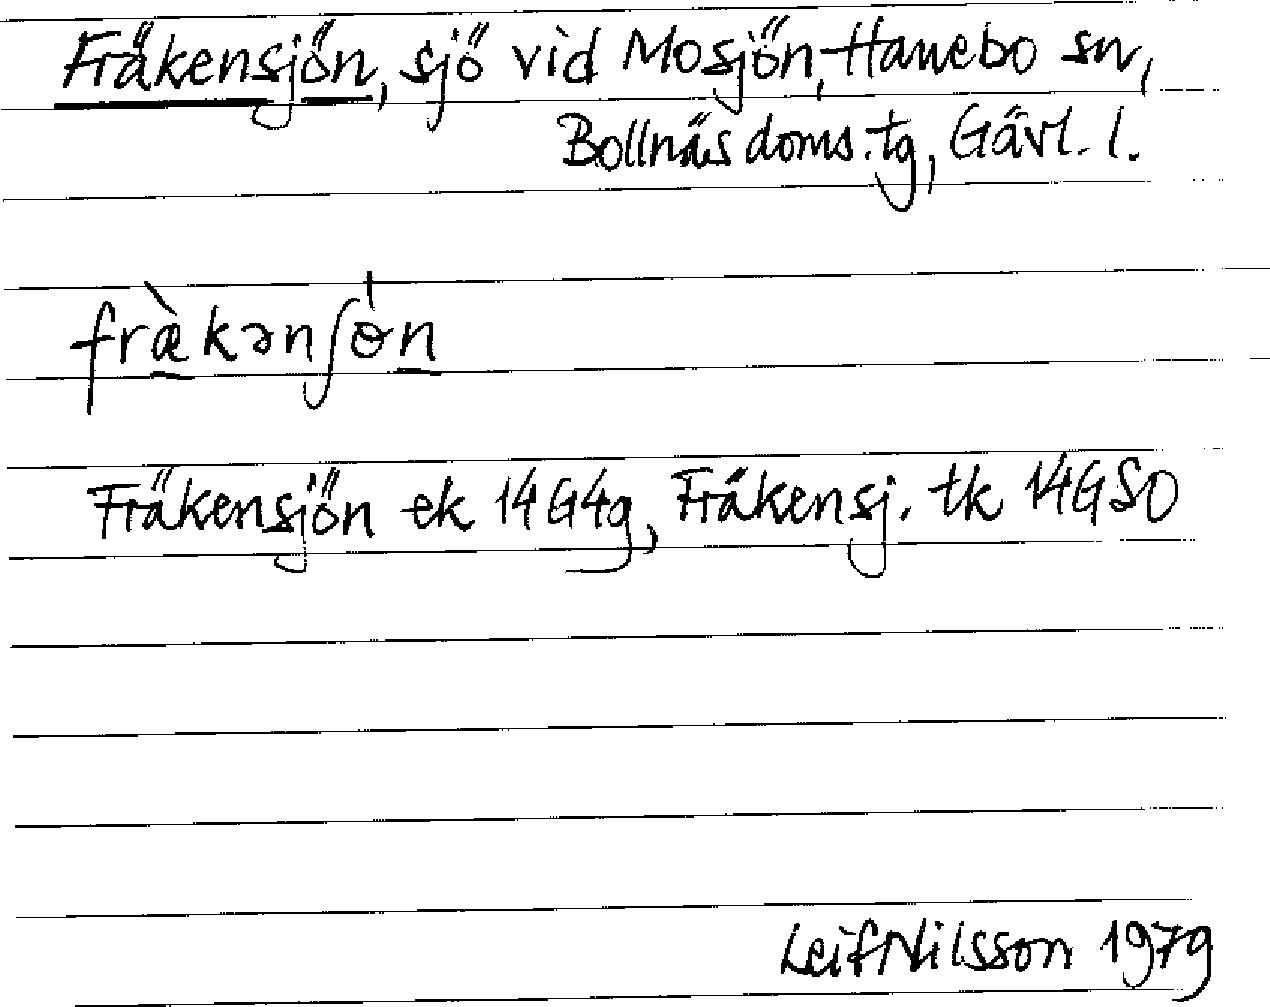 Fräkensjön, sjö vid Mosjön, Hanebo sn,
Bollnäs doms.tg, Gävl. l.
fræ̀kənʃɵ̀n
Fräkensjön ek 14G4g, Fräkensj. tk 14GSO
Leif Nilsson 1979